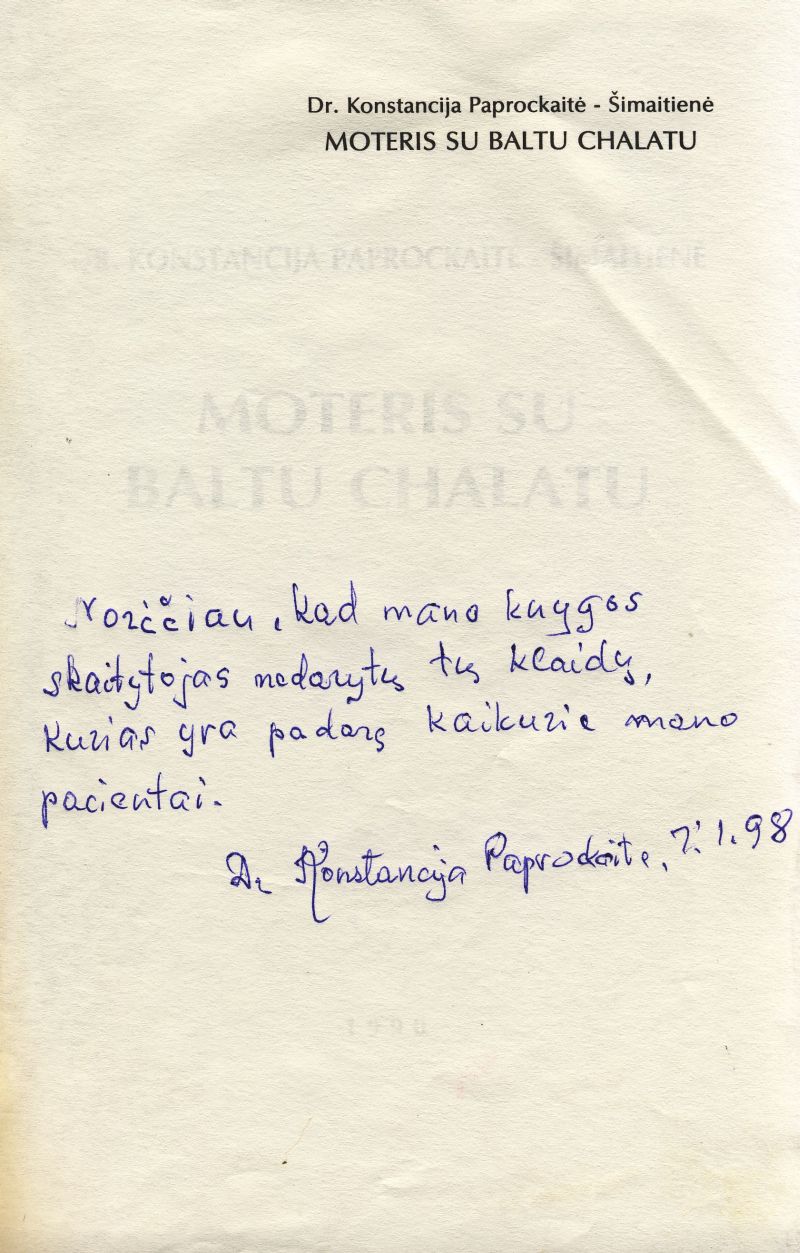 Dr. Konstancija Paprockaitė - Šimaitienė
MOTERIS SU BALTU CHALATU
DR. KONSTANCIJA PAPROCKAITĖ - ŠIMAITIENĖ
MOTERIS SU
BALTU CHALATU
Norėčiau, kad mano knygos
skaitytojas nedarytų tų klaidų,
kurias yra padarę kaikurie mano
pacientai.
Dr Konstancija Paprockaitė, 7.1.98